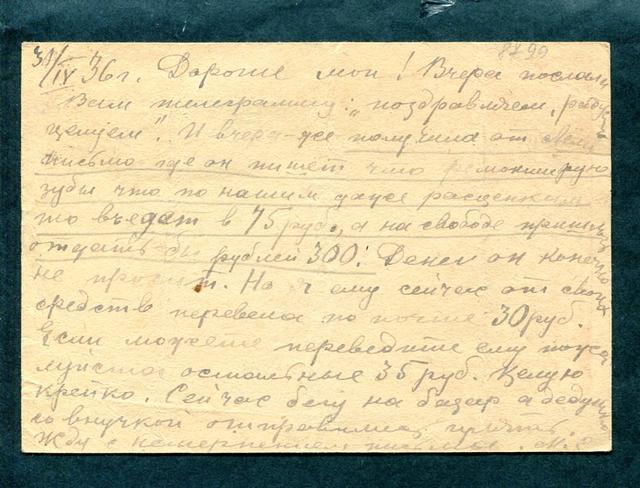 8799
31/IV 36г. Дорогие мои! Вчера послали
Вам телеграмму: "поздравляем, радуюсь
целуем". И вчера-же получила от
письмо где он пишет что ремонтирую
зубы что по нашим даже расценкам
то въедет в 75 руб., а на свободе пришлось
отдать бы рублей 300! Денег он конечно
не просит. Но я ему сейчас от своих
средств перевела по почте 30 руб.
Если можете переведите ему пожа
луйста остальные 35 руб. Целую
крепко. Сейчас бегу на базар а дедушка
с внучкой отправились гулять.
Жду с нетерпением письма.